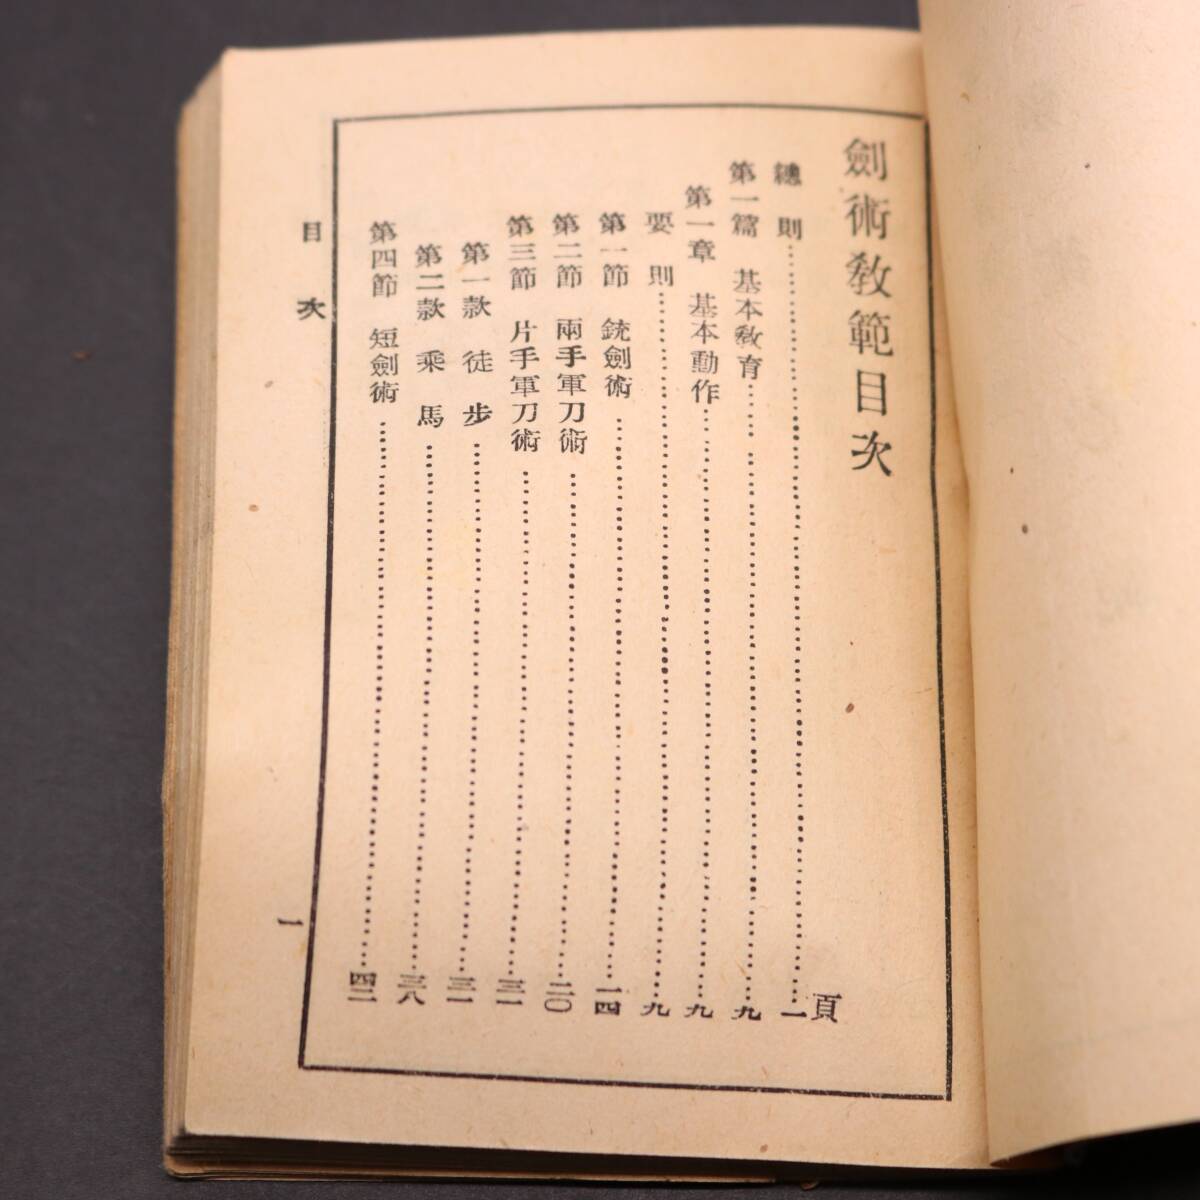 劍術敎範目次
頁
總則……一
第一篇 基本敎育……九
第一章 基本動作……九
要則……九
第一節 銃劍術……一四
第二節 兩手軍刀術……二〇
第三節 片手軍刀術……三一
第一款 徒步……三一
第二款 乘馬……三八
第四節 短劍術……四二
目次
一